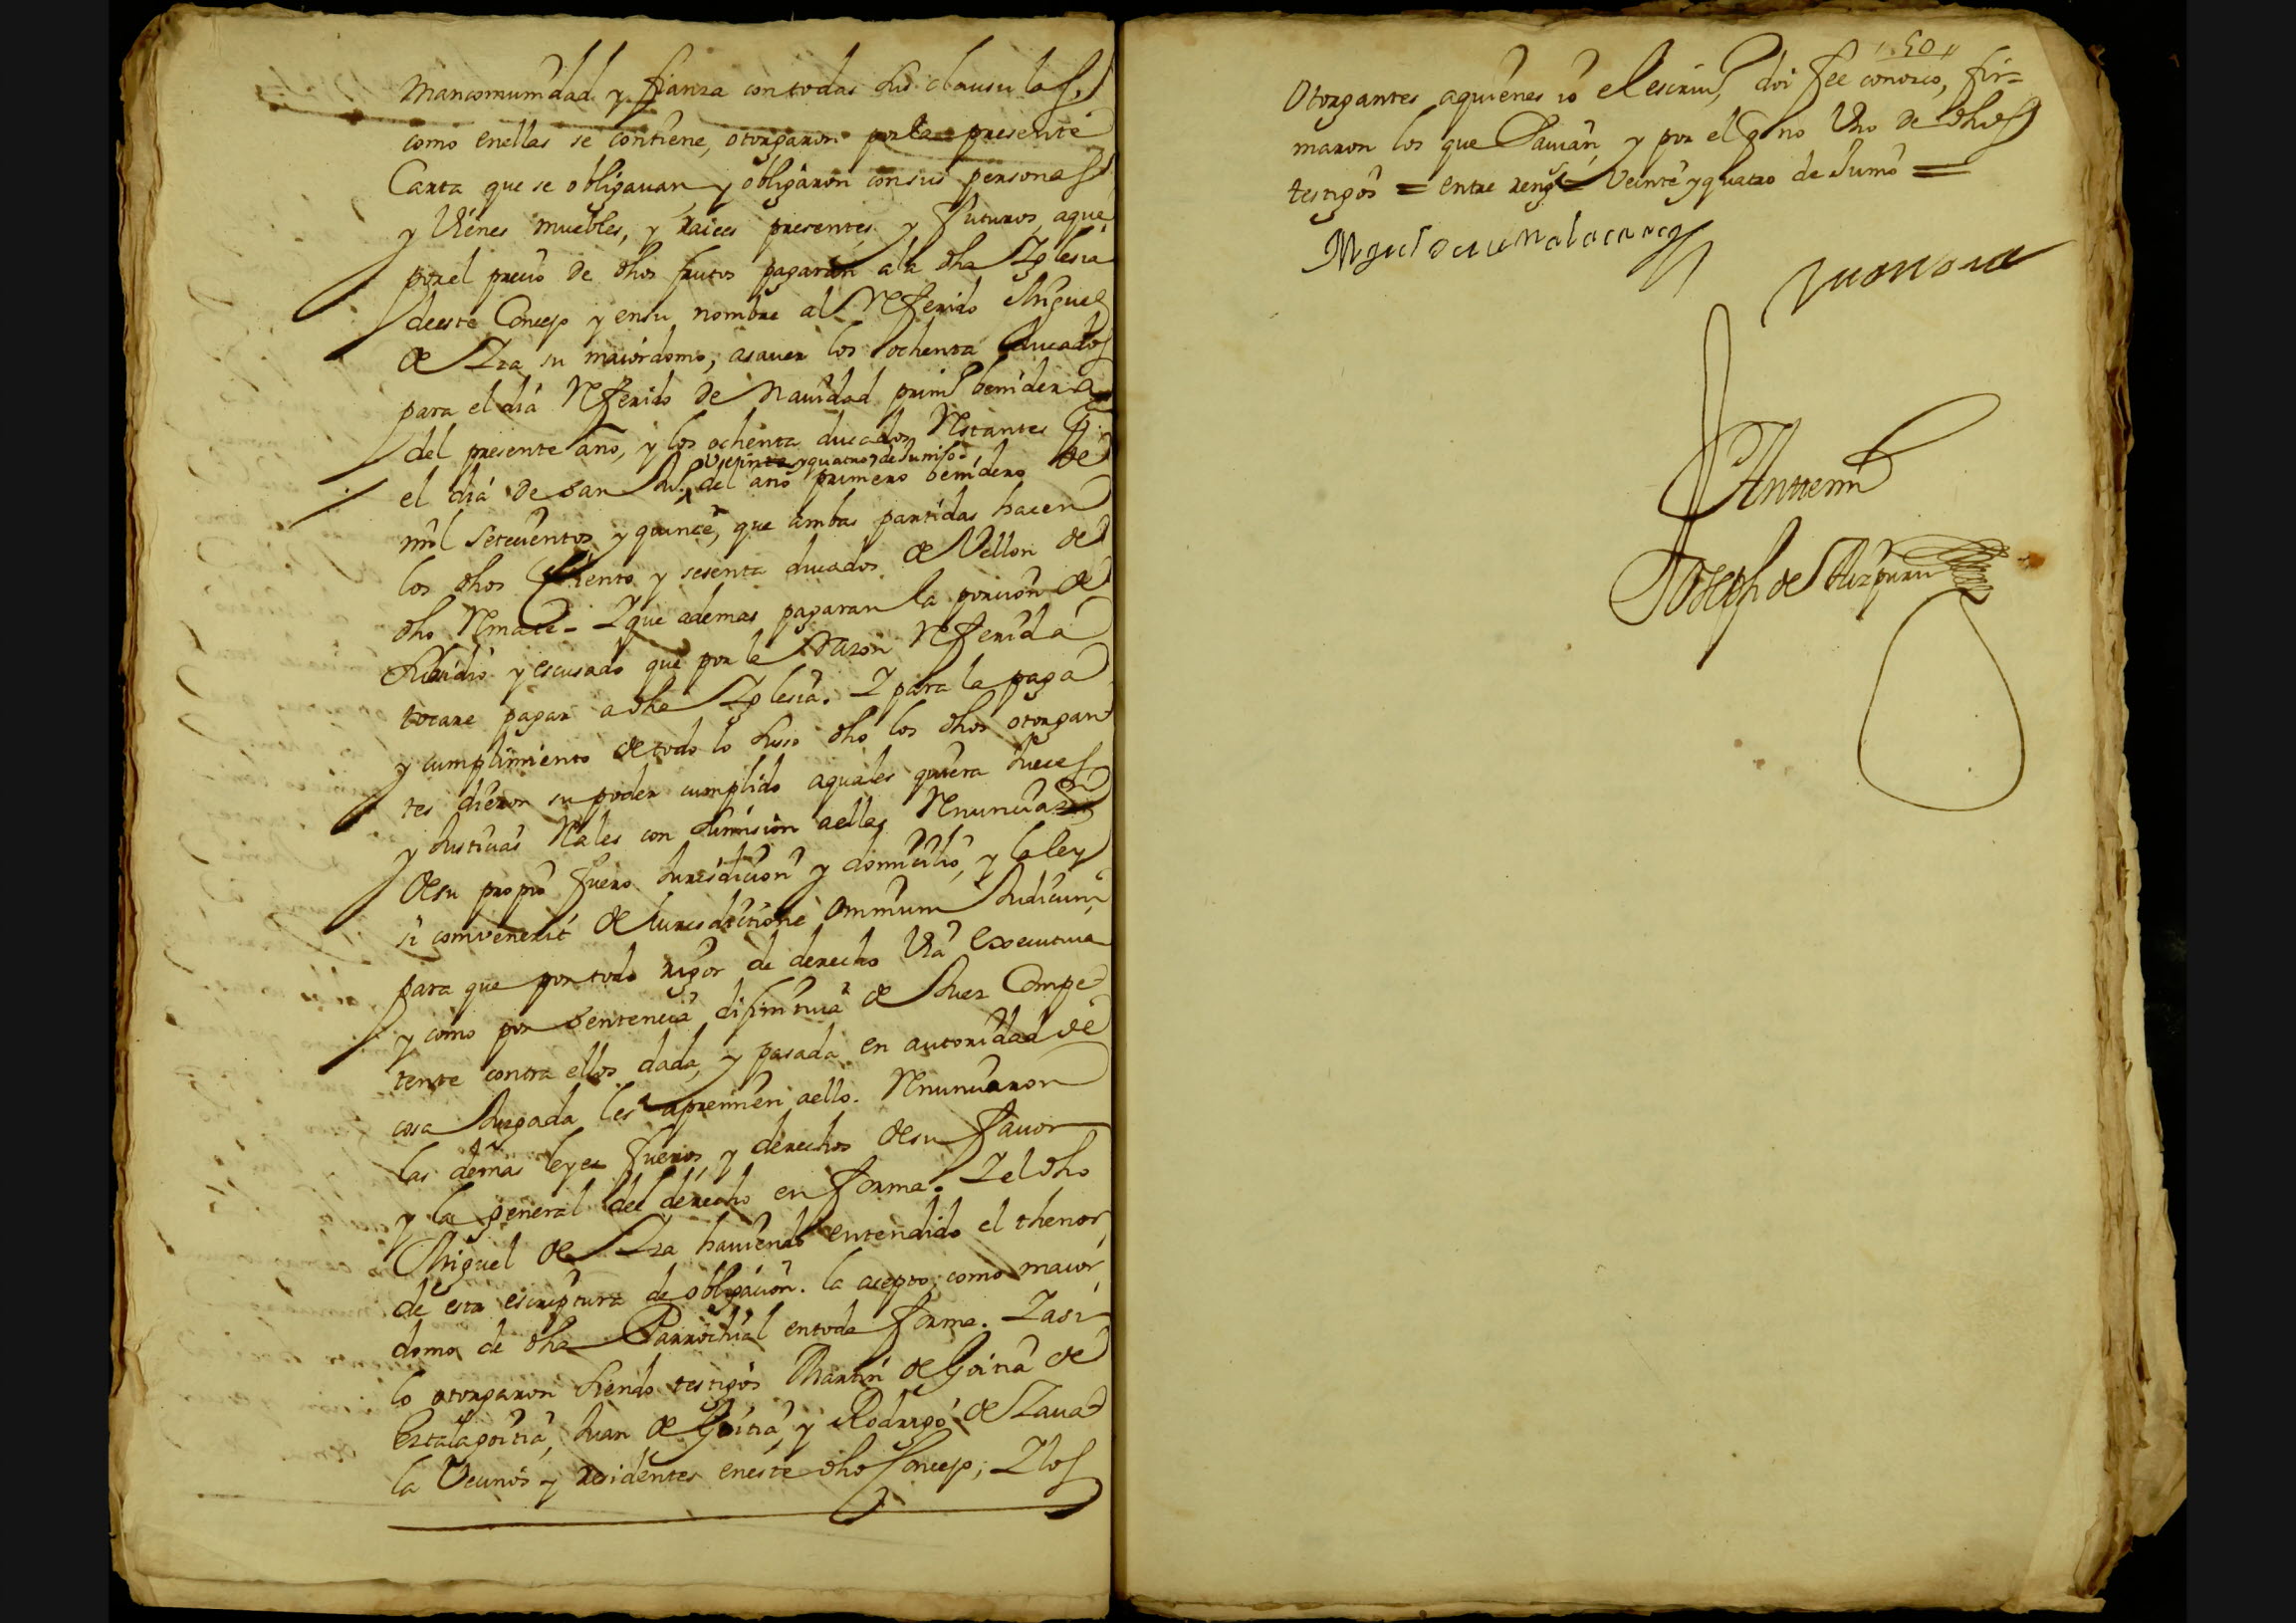 mancomunidad y fianza con todas sus clausulas,
como enellas se contiene, otorgaron por la presente
Carta que se obligauan y obligaron consus personas
y Vienes muebles, y raices presentes y futuros, aque
porel precio de dhos frutos pagaran ala dha Iglesia
deeste Concejo y ensu nombre al Referido Miguel
de Iza su maiordomo, asauer los ochenta ducados
para el dia Referido de Nauidad prim benidera
del presente año, y los ochenta ducados Restantes
Veinte y quatro de Junio
el dia de san del año primero benidero de
mil setecientos y quince, que ambas partidas hacen
los dhos Ciento y sesenta ducados de Vellon de
dho Remate - Y que ademas pagaran la porcion de
subsidio y escusado que por la Razon Referida
tocare pagar adha Iglesia. Y para la paga
y cumplimiento de todo lo suso dho los dhos otorgan
tes dieron su poder cumplido aquales quiera Jueces
y Justicias Rales con sumision aellas Renunciaron
desu propio fuero Jurisdicion y domicilio, y la ley
si convenerit de Jurisdictione omnium Judicum,
para que por todo rigor de derecho Via executiua
y como por sentencia difinitiua de Juez Compe
tente contra ellos dada, y pasada en autoridad de
cosa Juzgada les apremien aello. Renunciaron
las demas leyes fueros y derechos desu fauor
y la general del derecho en forma. Y el dho
Miguel de Iza hauiendo entendido el thenor
de esta escriptura de obligacion. la acepto como maior
domo de dha Parrochial entoda forma. Y asi
lo otorgaron siendo testigos Martin de Goitia de
Goitia, Juan de Goitia, y Rodrigo de Zaua
la Vecinos y residentes eneste dho Concejo; Y los
50
Otorgantes aquienes io el escriu, doi fee conozco, fir=
maron los que sauian, y por el q no Vno de dhos
testigos = entre reng Veinte y quatro de Junio =
Antemi
Joseph de Aizpuru